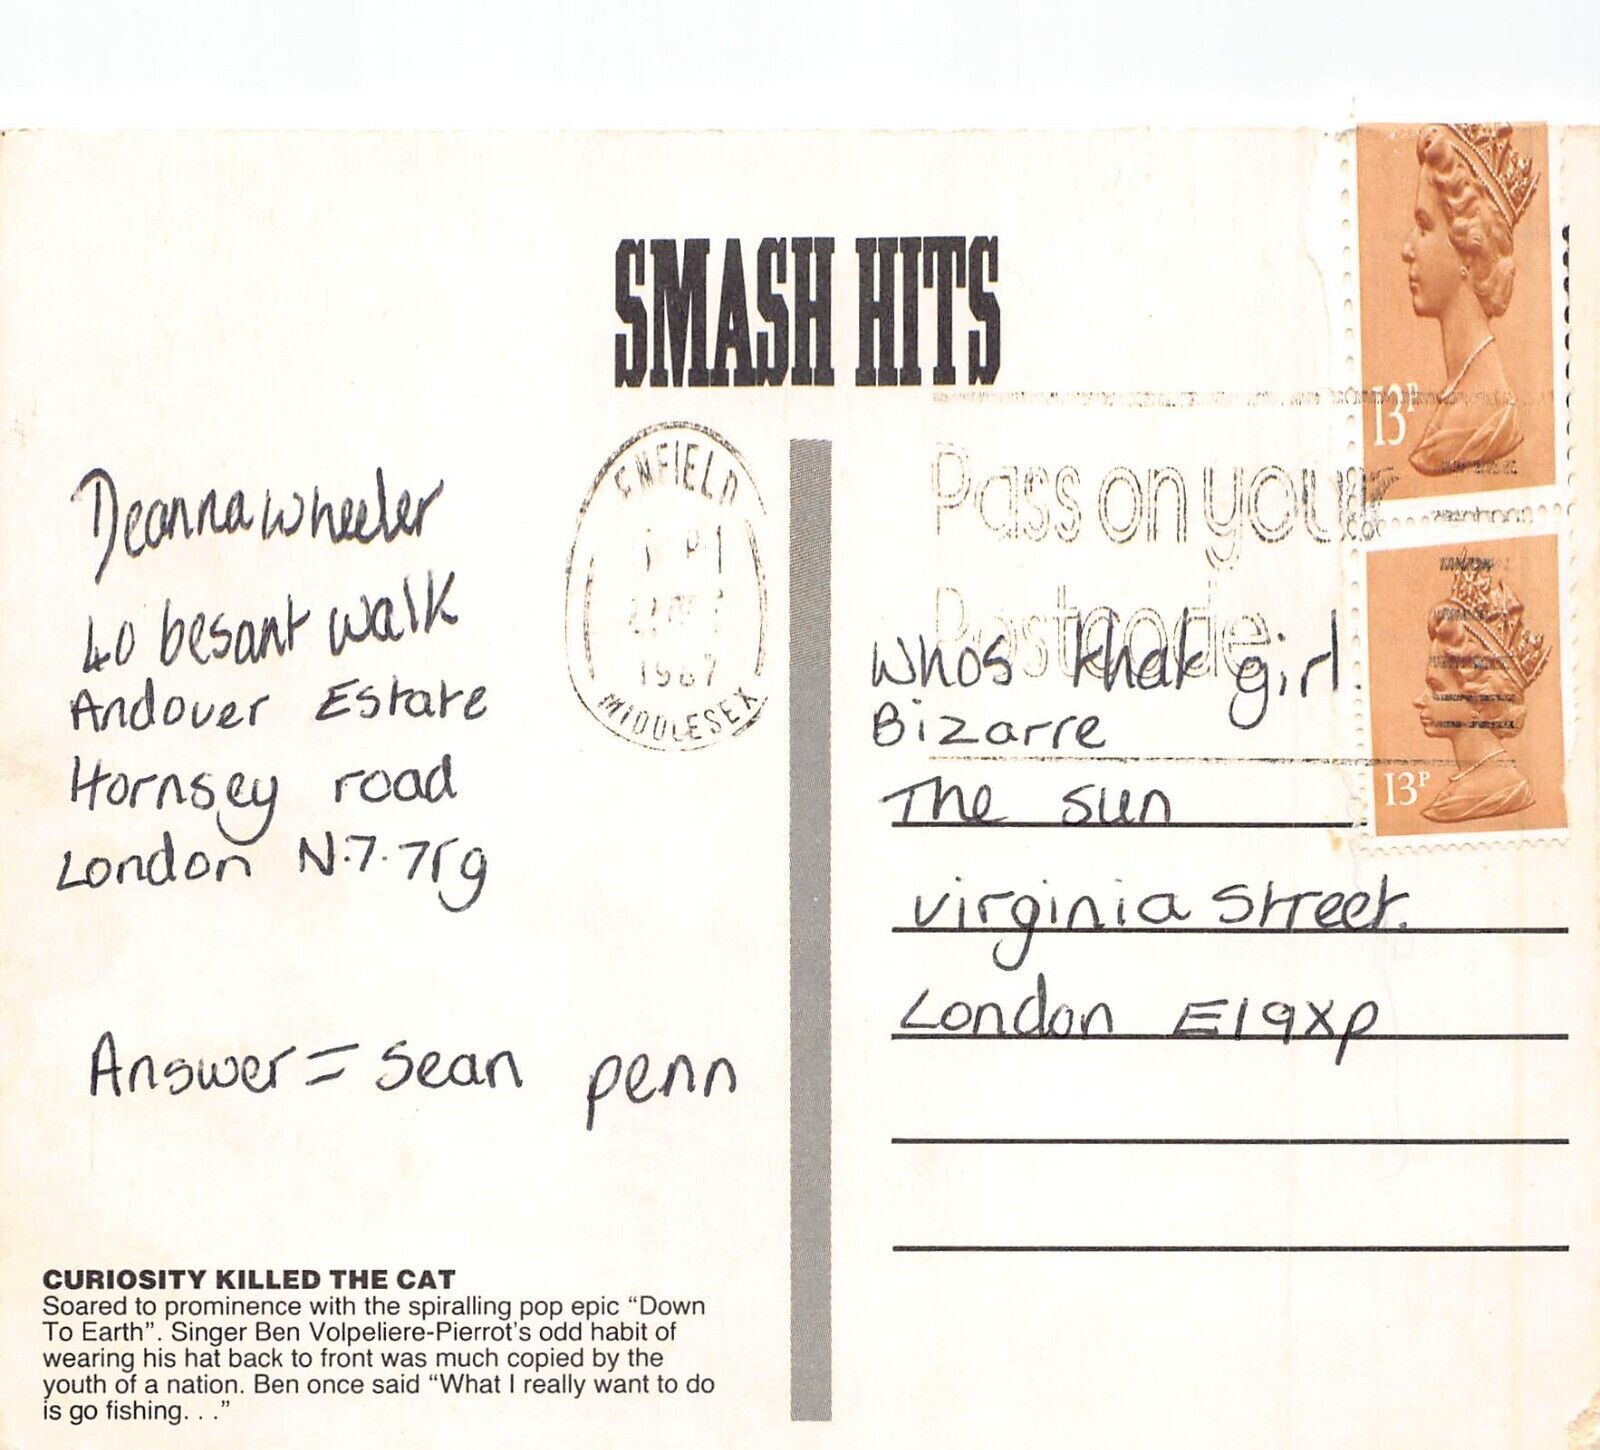 SMASH HITS
13P
13P
ENFIELD
1987
MIDDLESEX
Pass on your
Postcode
Deanna Wheeler
40 besant walk
Andover Estate
Hornsey road
London N.7.7rg
Answer = Sean penn
Whos that girl
Bizarre
The sun
virginia street.
London E19XP
CURIOSITY KILLED THE CAT
Soared to prominence with the spiralling pop epic “Down
To Earth”. Singer Ben Volpeliere-Pierrot's odd habit of
wearing his hat back to front was much copied by the
youth of a nation. Ben once said “What I really want to do
is go fishing. . .”